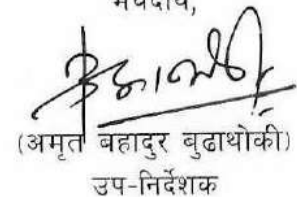 भवदीय,
(अमृत बहादुर बुढाथोकी)
उप-निर्देशक